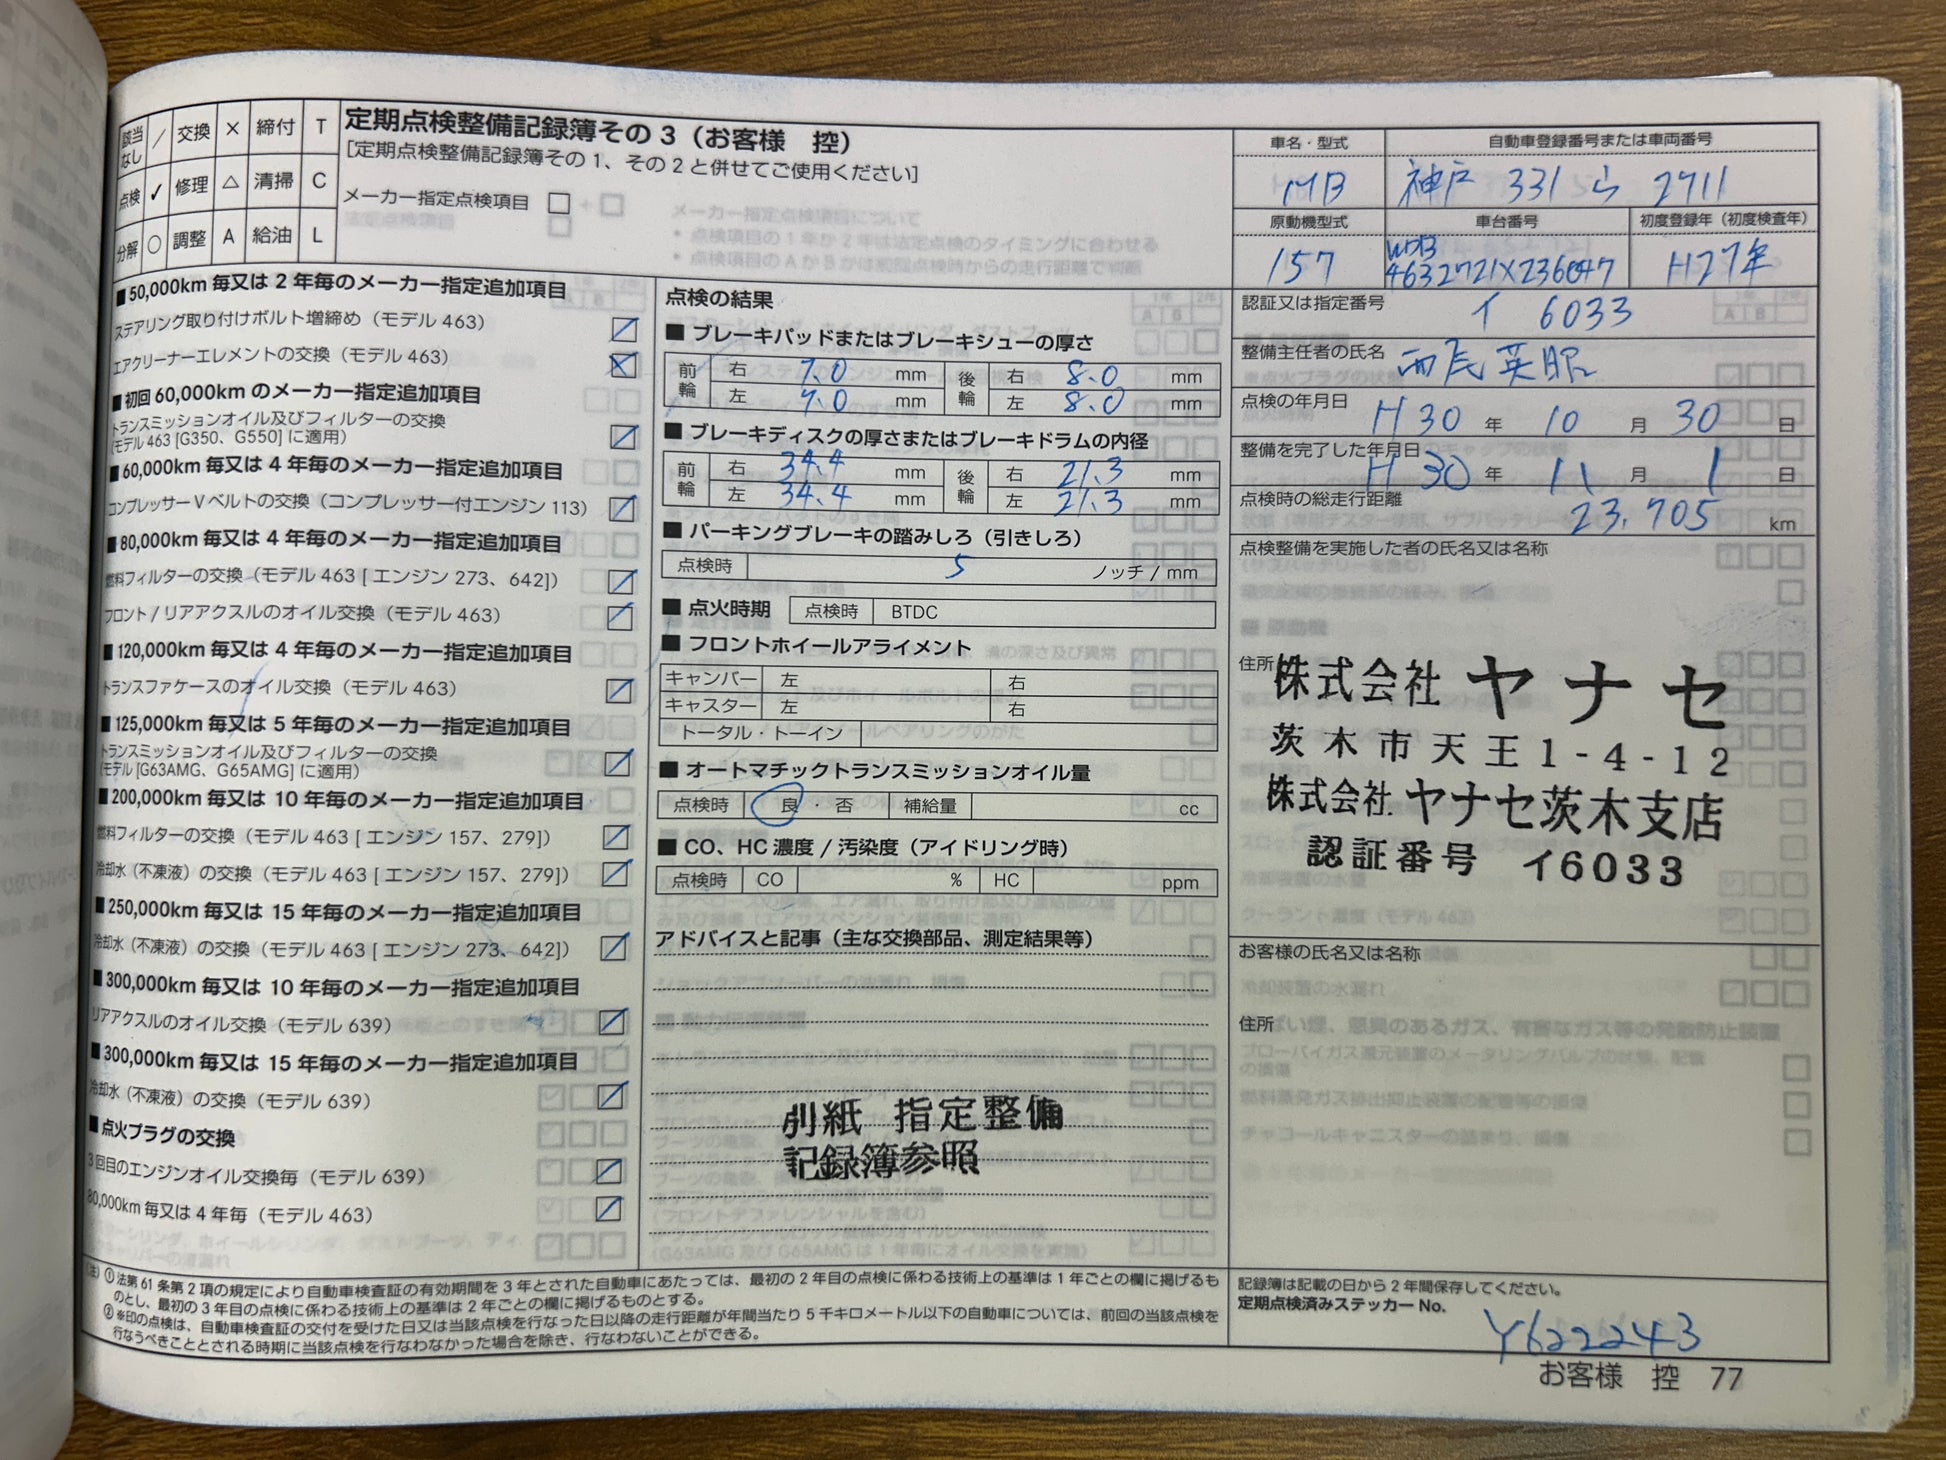 該当なし ／ 交換 × 締付 T
点検 ✓ 修理 △ 清掃 C
分解 ○ 調整 A 給油 L
定期点検整備記録簿その3（お客様　控）
[定期点検整備記録簿その1、その2と併せてご使用ください]
メーカー指定点検項目 □
■50,000km毎又は2年毎のメーカー指定追加項目
ステアリング取り付けボルト増締め（モデル463）
エアクリーナーエレメントの交換（モデル463）
■初回60,000kmのメーカー指定追加項目
トランスミッションオイル及びフィルターの交換
(モデル463 [G350、G550] に適用)
■60,000km毎又は4年毎のメーカー指定追加項目
コンプレッサーVベルトの交換（コンプレッサー付エンジン113）
■80,000km毎又は4年毎のメーカー指定追加項目
燃料フィルターの交換（モデル463 [ エンジン273、642]）
フロント/リアアクスルのオイル交換（モデル463）
■120,000km毎又は4年毎のメーカー指定追加項目
トランスファケースのオイル交換（モデル463）
■125,000km毎又は5年毎のメーカー指定追加項目
トランスミッションオイル及びフィルターの交換
(モデル [G63AMG、G65AMG] に適用)
■200,000km毎又は10年毎のメーカー指定追加項目
燃料フィルターの交換（モデル463 [ エンジン157、279]）
冷却水（不凍液）の交換（モデル463 [ エンジン157、279]）
■250,000km毎又は15年毎のメーカー指定追加項目
冷却水（不凍液）の交換（モデル463 [ エンジン273、642]）
■300,000km毎又は10年毎のメーカー指定追加項目
リアアクスルのオイル交換（モデル639）
■300,000km毎又は15年毎のメーカー指定追加項目
冷却水（不凍液）の交換（モデル639）
■点火プラグの交換
3回目のエンジンオイル交換毎（モデル639）
80,000km毎又は4年毎（モデル463）
点検の結果
■ブレーキパッドまたはブレーキシューの厚さ
前輪 右 7.0 mm 後輪 右 8.0 mm
左 7.0 mm 左 8.0 mm
■ブレーキディスクの厚さまたはブレーキドラムの内径
前輪 右 34.4 mm 後輪 右 21.3 mm
左 34.4 mm 左 21.3 mm
■パーキングブレーキの踏みしろ（引きしろ）
点検時 5 ノッチ / mm
■点火時期 点検時 BTDC
■フロントホイールアライメント
キャンバー 左 右
キャスター 左 右
トータル・トーイン
■オートマチックトランスミッションオイル量
点検時 良・否 補給量 cc
■CO、HC濃度 / 汚染度（アイドリング時）
点検時 CO % HC ppm
アドバイスと記事（主な交換部品、測定結果等）
別紙 指定整備
記録簿参照
車名・型式 自動車登録番号または車両番号
MB 神戸 331 ら 2711
原動機型式 車台番号 初度登録年（初度検査年）
157 WDB 4632721X236047 H27年
認証又は指定番号 イ 6033
整備主任者の氏名 西尾
点検の年月日 H30 年 10 月 30 日
整備を完了した年月日 H30 年 11 月 1 日
点検時の総走行距離 23,705 km
点検整備を実施した者の氏名又は名称
住所
株式会社 ヤナセ
茨木市天王1-4-12
株式会社 ヤナセ茨木支店
認証番号 イ6033
お客様の氏名又は名称
住所
(注) ① 法第61条第2項の規定により自動車検査証の有効期間を3年とされた自動車にあたっては、最初の2年目の点検に係わる技術上の基準は1年ごとの欄に掲げるも
のとし、最初の3年目の点検に係わる技術上の基準は2年ごとの欄に掲げるものとする。
② ※印の点検は、自動車検査証の交付を受けた日又は当該点検を行なった日以降の走行距離が年間当たり5千キロメートル以下の自動車については、前回の当該点検を
行なうべきこととされる時期に当該点検を行なわなかった場合を除き、行なわないことができる。
記録簿は記載の日から2年間保存してください。
定期点検済みステッカーNo.
Y622243
お客様　控　77